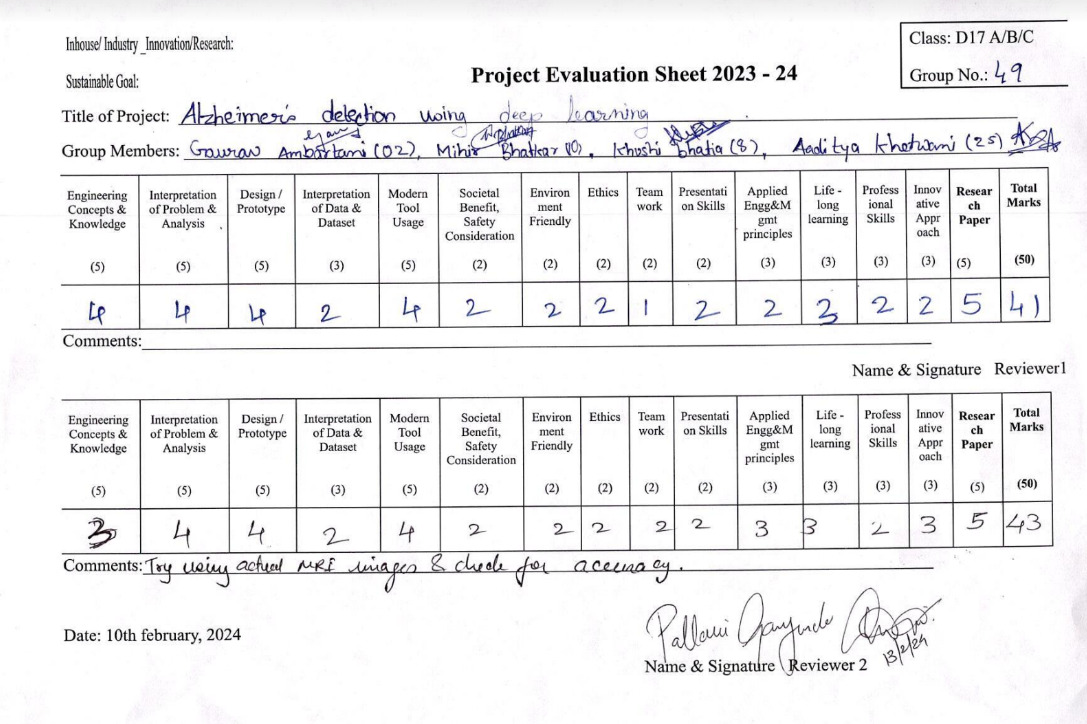 Inhouse/ Industry _Innovation/Research:
Class: D17 A/B/C
Sustainable Goal:
Project Evaluation Sheet 2023 - 24
Group No.: 49
Title of Project: Alzheimer's detection using deep learning
Group Members: Gaurav Ambartani (02), Mihir Bhatkar (10), Khushi Bhatia (8), Aaditya Khetwani (25)
Engineering Concepts & Knowledge (5) Interpretation of Problem & Analysis (5) Design / Prototype (5) Interpretation of Data & Dataset (3) Modern Tool Usage (5) Societal Benefit, Safety Consideration (2) Environ ment Friendly (2) Ethics (2) Team work (2) Presentati on Skills (2) Applied Engg&M gmt principles (3) Life - long learning (3) Profess ional Skills (3) Innov ative Appr oach (3) Resear ch Paper (5) Total Marks (50)
4 4 4 2 4 2 2 2 1 2 2 3 2 2 5 41
Comments:
Name & Signature Reviewer1
Engineering Concepts & Knowledge (5) Interpretation of Problem & Analysis (5) Design / Prototype (5) Interpretation of Data & Dataset (3) Modern Tool Usage (5) Societal Benefit, Safety Consideration (2) Environ ment Friendly (2) Ethics (2) Team work (2) Presentati on Skills (2) Applied Engg&M gmt principles (3) Life - long learning (3) Profess ional Skills (3) Innov ative Appr oach (3) Resear ch Paper (5) Total Marks (50)
3 4 4 2 4 2 2 2 2 2 3 3 2 3 5 43
Comments: Try using actual MRI images & check for accuracy.
Date: 10th february, 2024
Pallavi
13/2/24
Name & Signature Reviewer 2